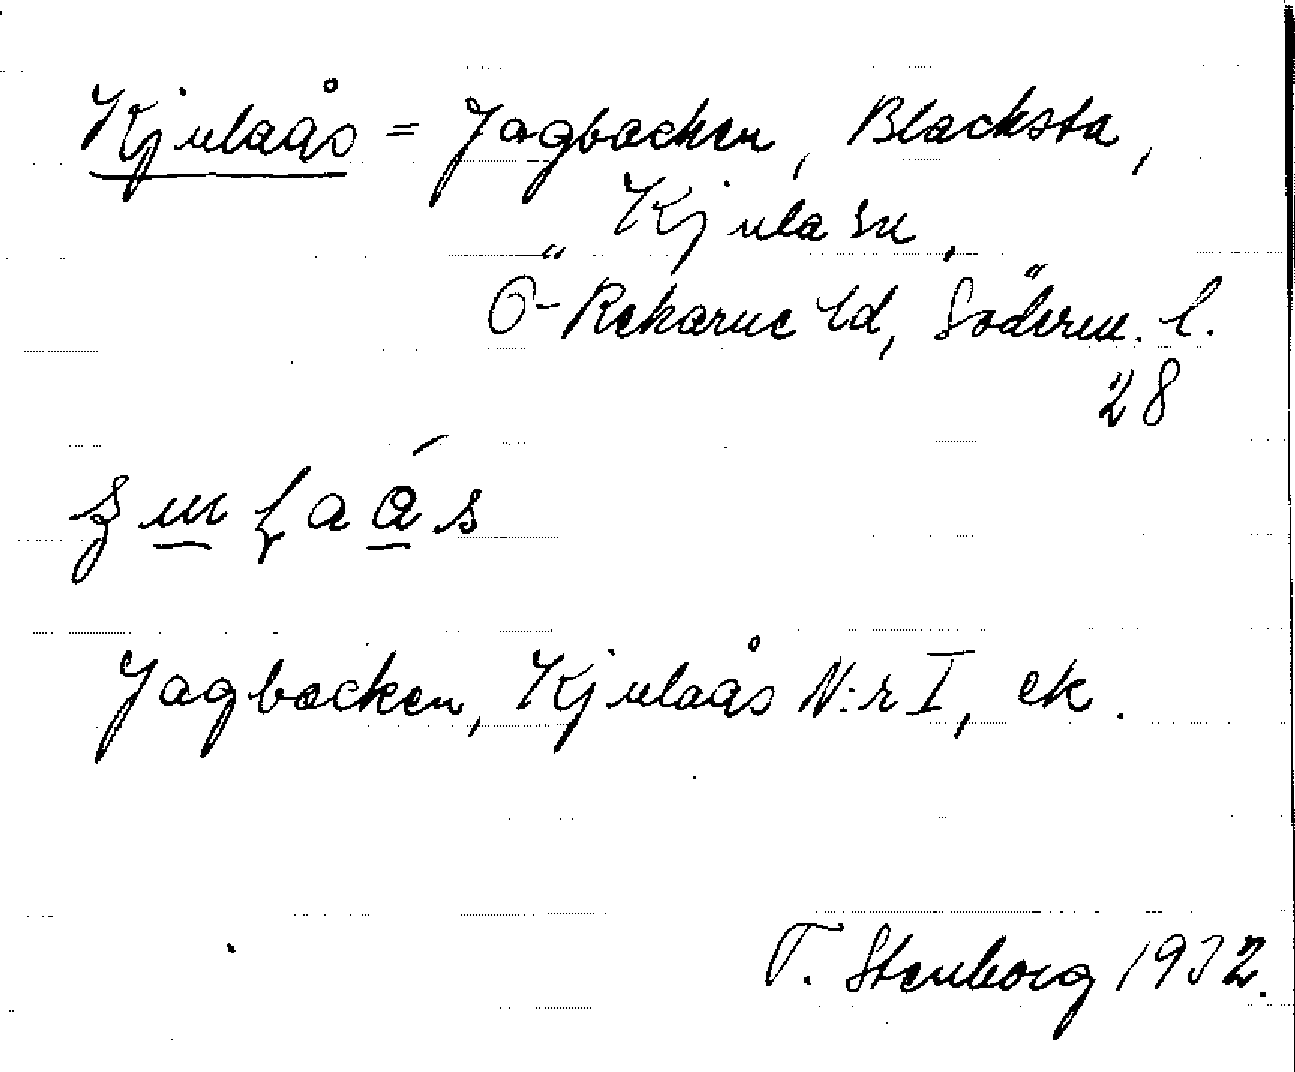 Kjulaås = Jagbacken, Blacksta,
Kjula sn,
Ö-Rekarne hd, Söderm. l.
28
Jagbacken, Kjulaås N:r I, ek.
T. Stenborg 1932.